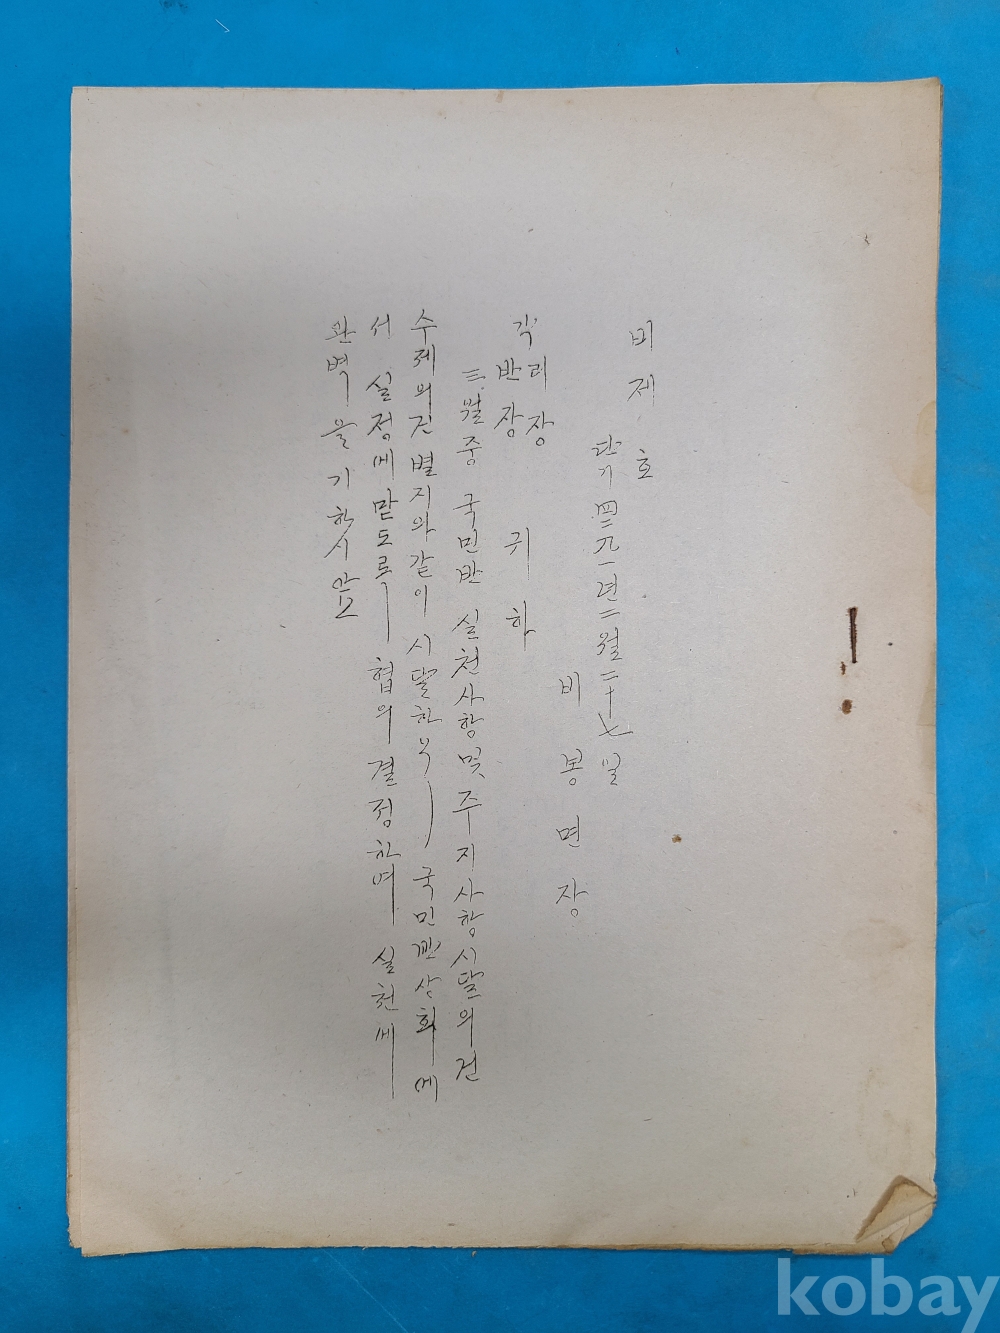 비제 호
단기四二九一년二월二十七일
비봉면장
각 리장
반장 귀하
三.월중 국민반 실천사항및 주지사항시달의건
수제의건별지와같이 시달하오니 국민반상회에
서 실정에맞도록 협의결정하여 실천에
완벽을기하시압
kobay